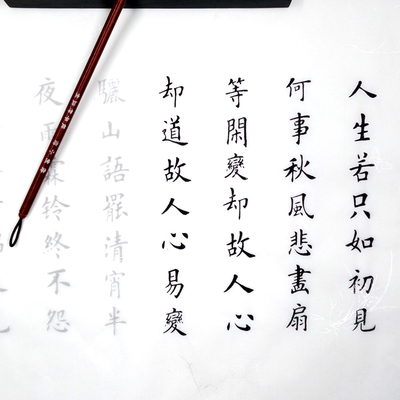 人生若只如初見
何事秋風悲畫扇
等閑變却故人心
却道故人心易變
驪山語罷清宵半
夜雨霖铃終不怨